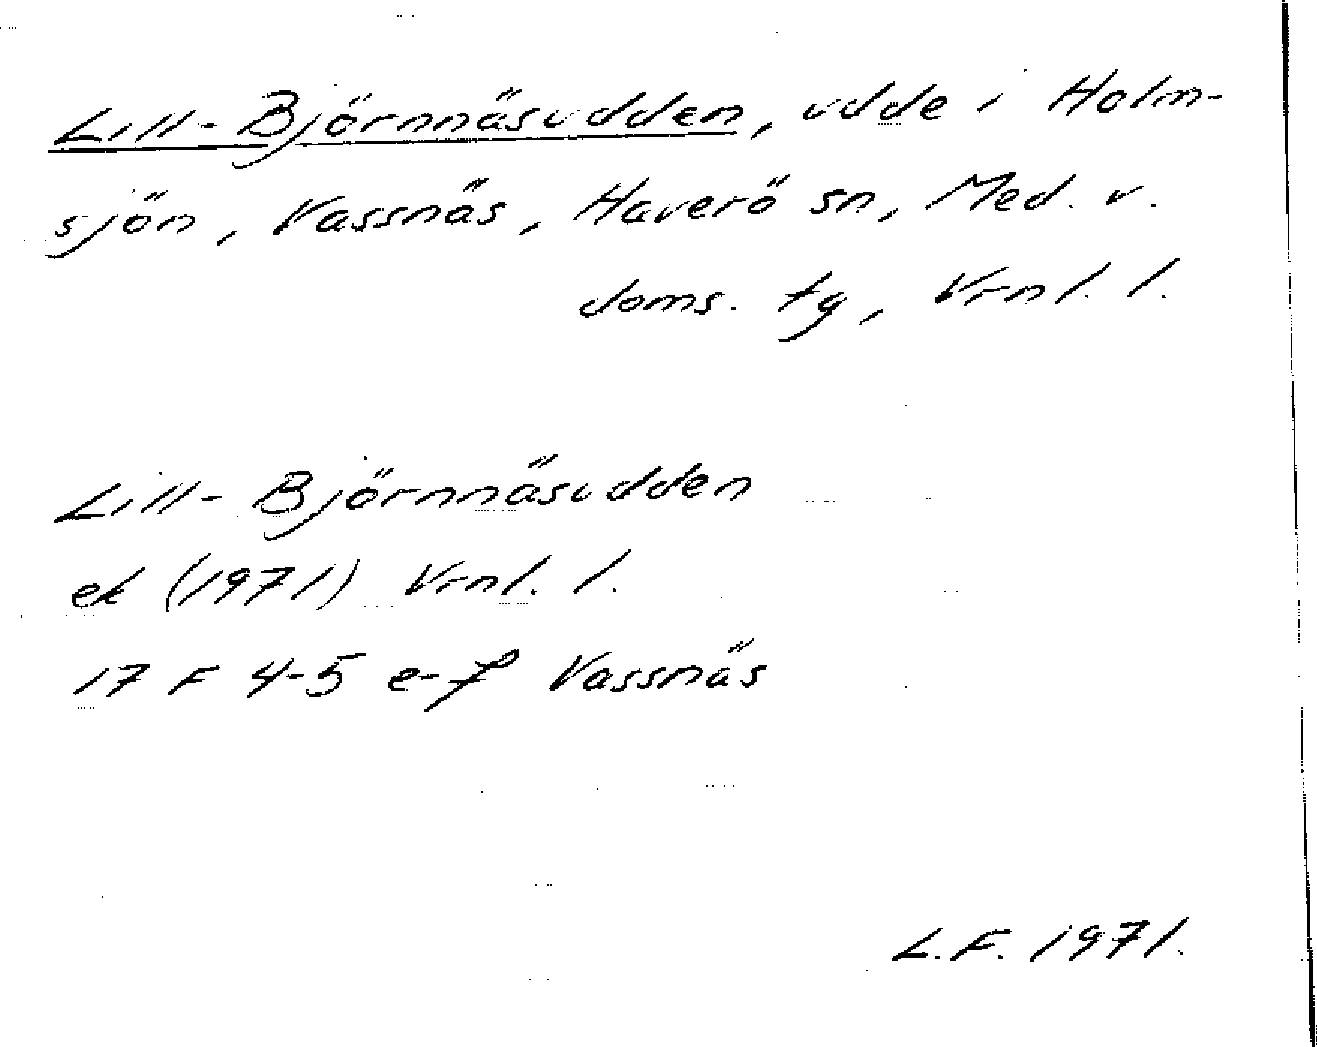 Lill-Björnnäsudden, udde i Holm-
sjön, Vassnäs, Haverö sn, Med. v.
doms. tg, Vrnl. l.
Lill-Björnnäsudden
ek (1971) Vrnl. l.
17 F 4-5 e-f Vassnäs
L.F. 1971.